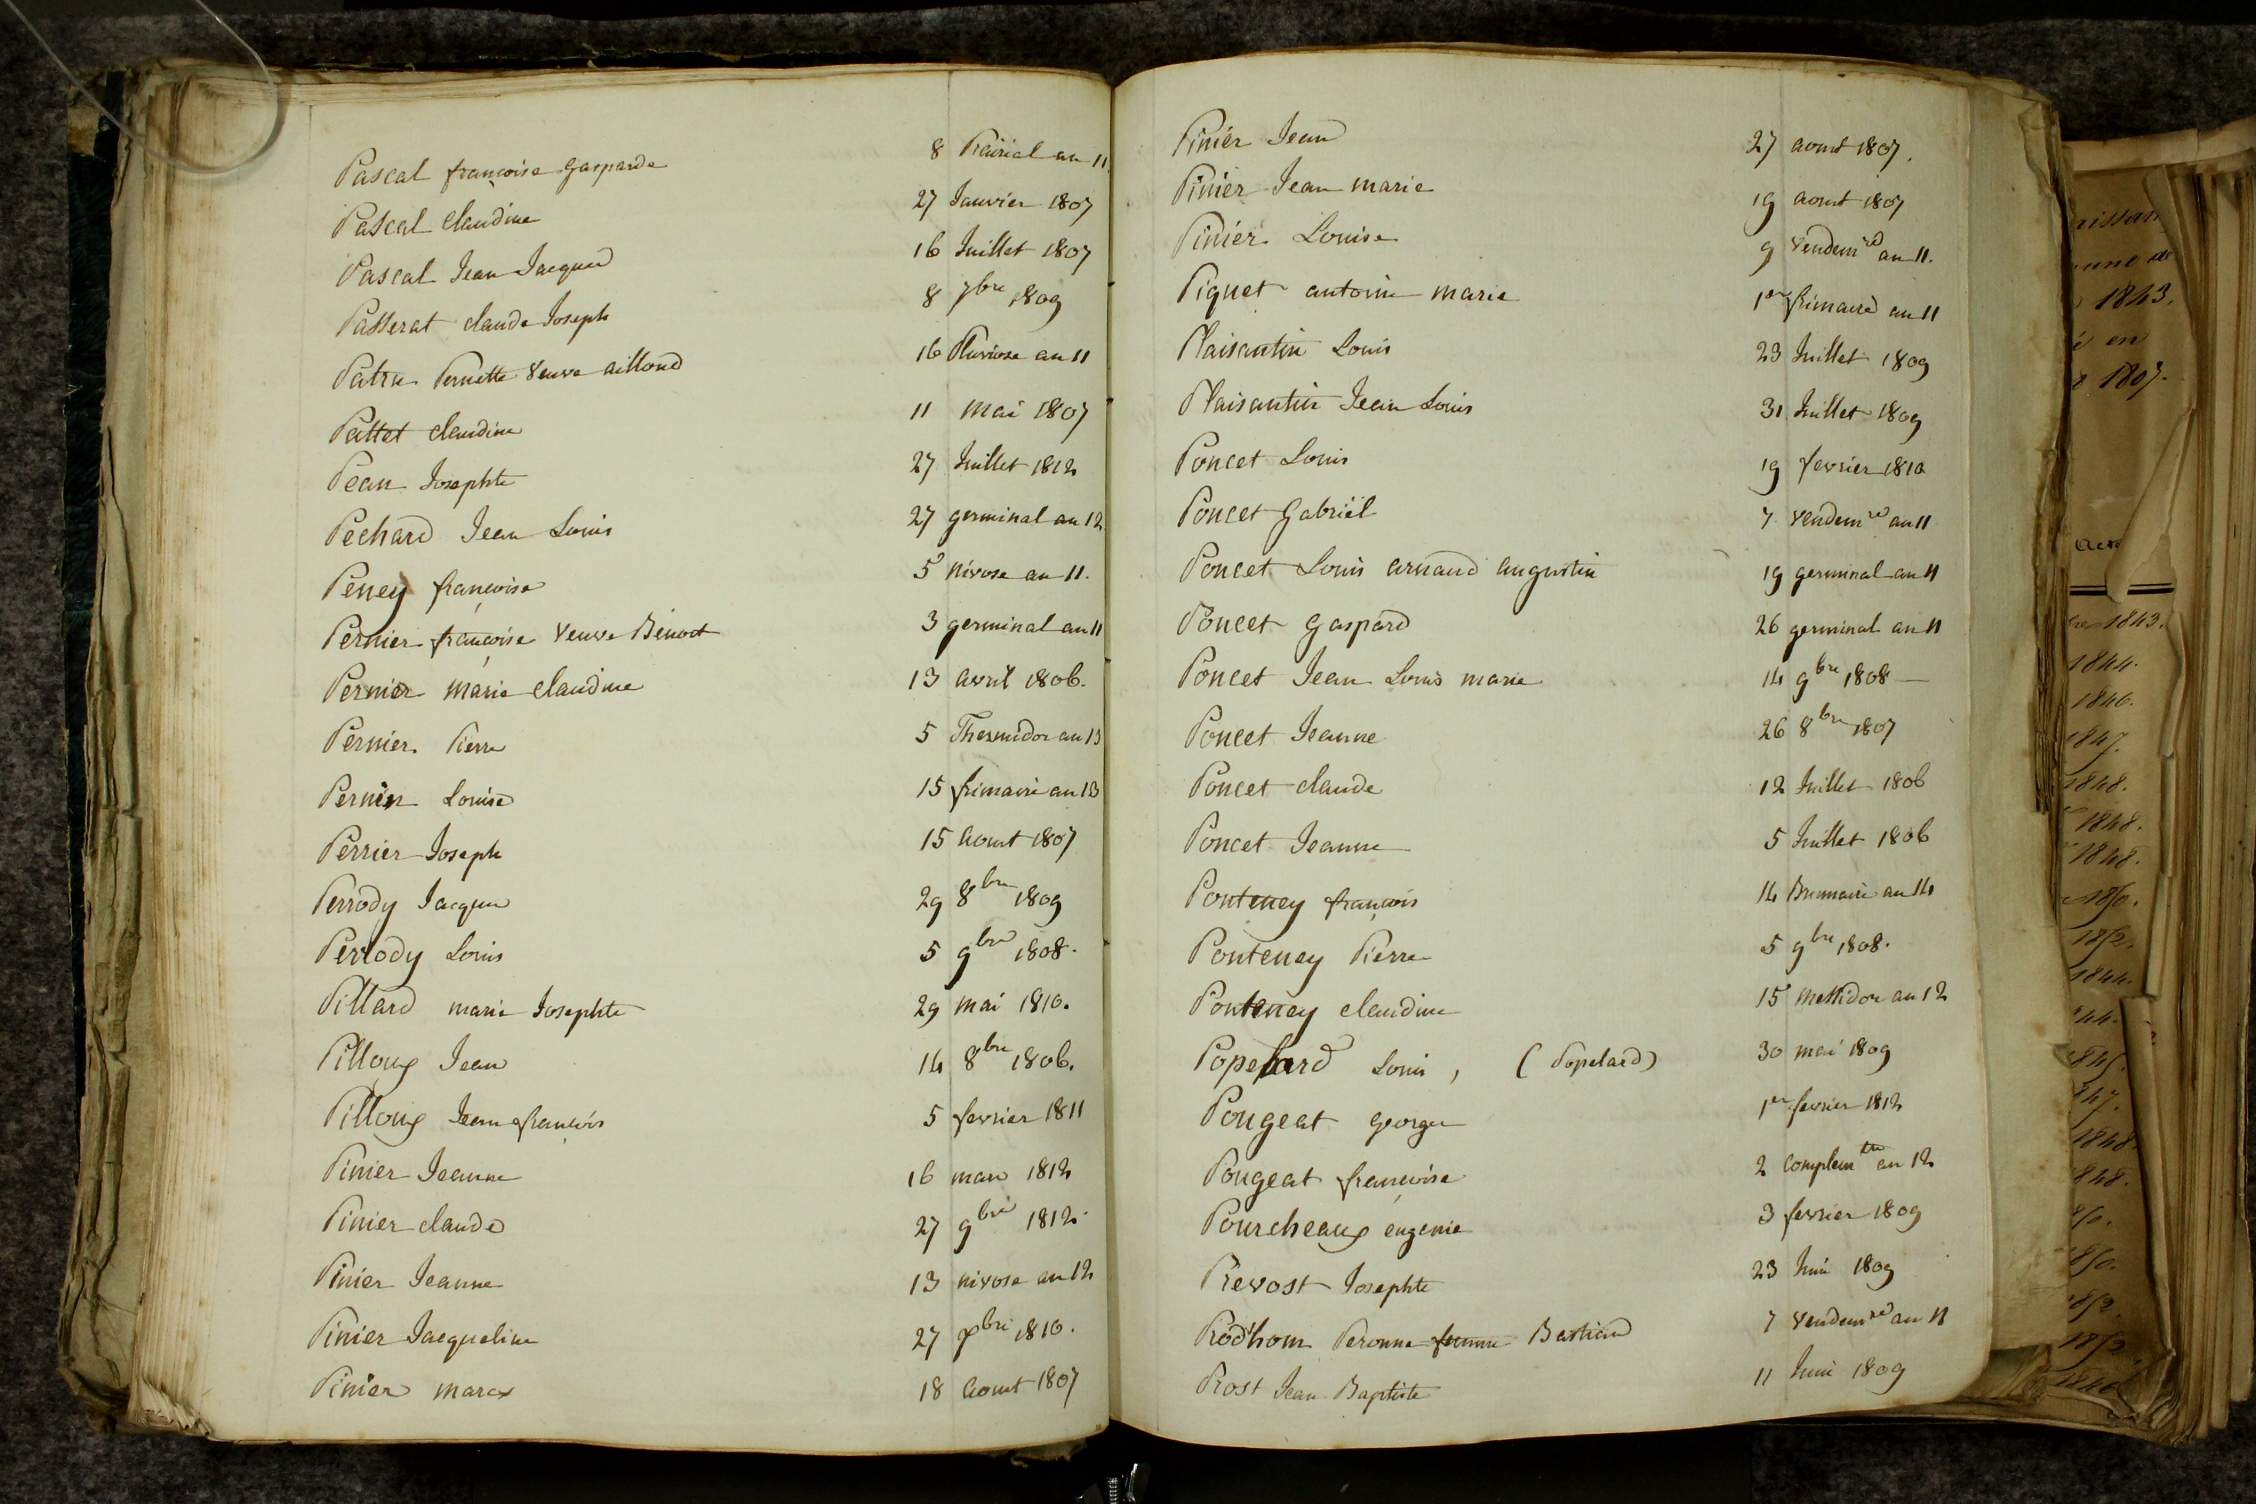 Pascal françoise Gasparde 8 Prairial an 11
Pascal claudine 27 Janvier 1807
Pascal Jean Jacques 16 Juillet 1807
Passerat claude Joseph 8 7bre 1809
Patru Pernette Veuve ailloud 16 Pluviose an 11
Pattet claudine 11 mai 1807
Pean Josephte 27 Juillet 1812
Pechard Jean Louis 27 germinal an 12
Peney françoise 5 nivose an 11.
Pernier françoise Veuve Benoit 3 germinal an 11
Pernier marie claudine 13 avril 1806.
Pernier Pierre 5 Thermidor an 13
Pernin Louise 15 frimaire an 13
Perrier Joseph 15 aout 1807
Perrody Jacques 29 8bre 1809
Perrody Louis 5 9bre 1808.
Pillard marie Josephte 29 mai 1810.
Pilloux Jean 14 8bre 1806.
Pilloux Jean françois 5 fevrier 1811
Pinier Jeanne 16 mars 1812
Pinier claude 27 9bre 1812.
Pinier Jeanne 13 nivose an 12
Pinier Jacqueline 27 xbre 1810.
Pinier marc 18 aout 1807
Pinier Jean 27 aout 1807.
Pinier Jean marie 19 aout 1807
Pinier Louise 9 vendemre an 11.
Piquet antoine marie 1er frimaire an 11
Plaisantin Louis 23 Juillet 1809
Plaisantin Jean Louis 31 Juillet 1809
Poncet Louis 19 fevrier 1810
Poncet Gabriel 7 vendemre an 11
Poncet Louis arnaud augustin 19 germinal an 11
Poncet Gaspard 26 germinal an 11
Poncet Jean Louis marie 14 9bre 1808
Poncet Jeanne 26 8bre 1807
Poncet claude 12 Juillet 1806
Poncet Jeanne 5 Juillet 1806
Ponteney françois 14 Brumaire an 14
Ponteney Pierre 5 9bre 1808.
Ponteney claudine 15 messidor an 12
Popelard Louis, (Popelard) 30 mai 1809
Pougeat george 1er fevrier 1812
Pougeat françoise 2 complemtre an 12
Pourcheaux eugenie 3 fevrier 1809
Prevost Josephte 23 Juin 1809
Prod'hom Peronne femme Bastian 7 vendemre an 11
Prost Jean Baptiste 11 Juin 1809
1843.
en
1807.
1843.
1844.
1846.
1847.
1848.
1848.
1848.